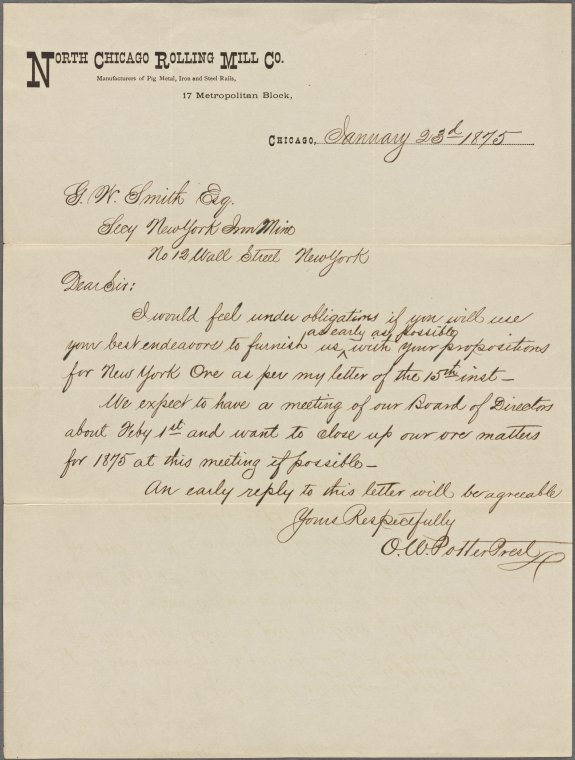 NORTH CHICAGO ROLLING MILL CO.
Manufacturers of Pig Metal, Iron and Steel Rails,
17 Metropolitan Block,
CHICAGO, January 23d 1875
G. W. Smith Esq.
Secy New York Iron Mine
No 12 Wall Street New York
Dear Sir:
I would feel under obligations if you will use
as early as possible
your best endeavors to furnish us ‸ with your propositions
for New York Ore as per my letter of the 15th inst –
We expect to have a meeting of our Board of Directors
about Feby 1st and want to close up our ore matters
for 1875 at this meeting if possible –
An early reply to this letter will be agreeable
Yours Respectfully
O. W. Potter Prest